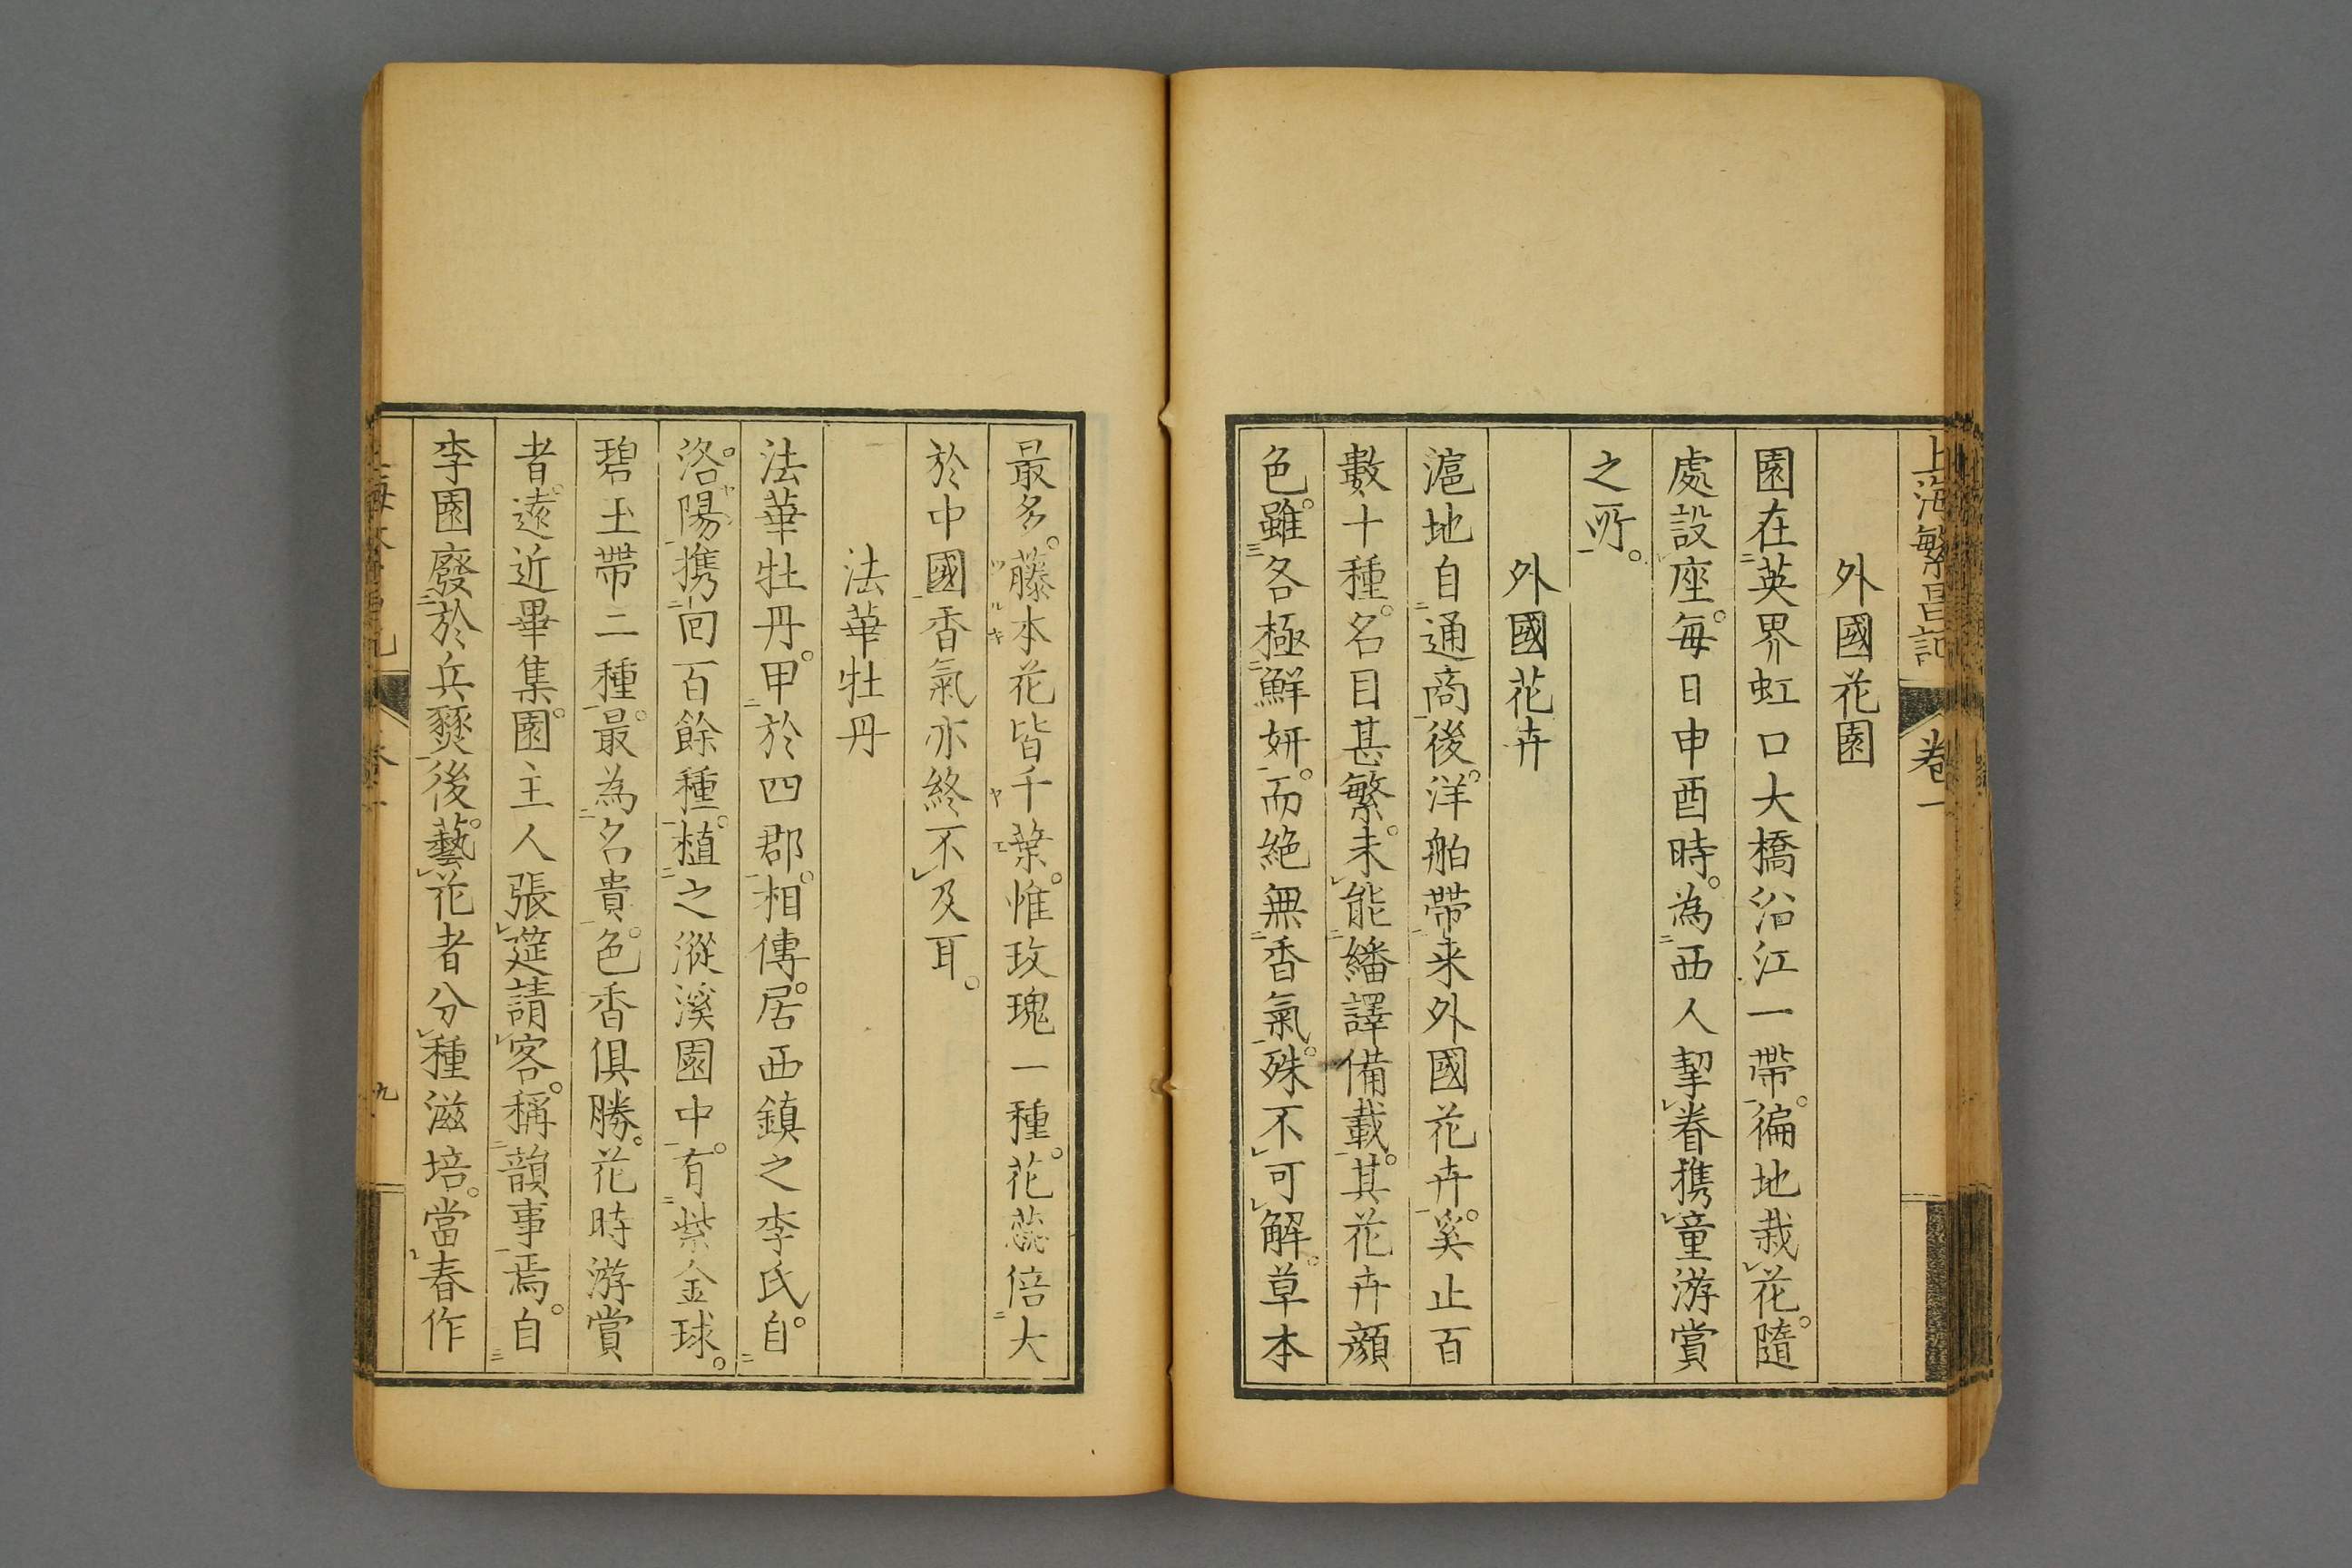 上海繁昌記 卷一
外國花園
園在英界虹口大橋沿江一帶。徧地栽花。隨
處設座。每日申酉時。為西人挈眷携童游賞
之所。
外國花卉
滬地自通商後。洋舶帶来外國花卉。奚止百
數十種。名目甚繁。未能繙譯備載。其花卉顔
色。雖各極鮮妍。而絶無香氣。殊不可解。草本
最多。藤本花皆千葉。惟玫瑰一種。花蕊倍大
於中國。香氣亦終不及耳。
法華牡丹
法華牡丹。甲於四郡。相傳。居西鎮之李氏。自
洛陽携回百餘種。植之漎溪園中。有紫金球。
碧玉帶二種。最為名貴。色香俱勝。花時游賞
者。遠近畢集。園主人張筵請客。稱韻事焉。自
李園廢於兵燹後。藝花者分種滋培。當春作
九